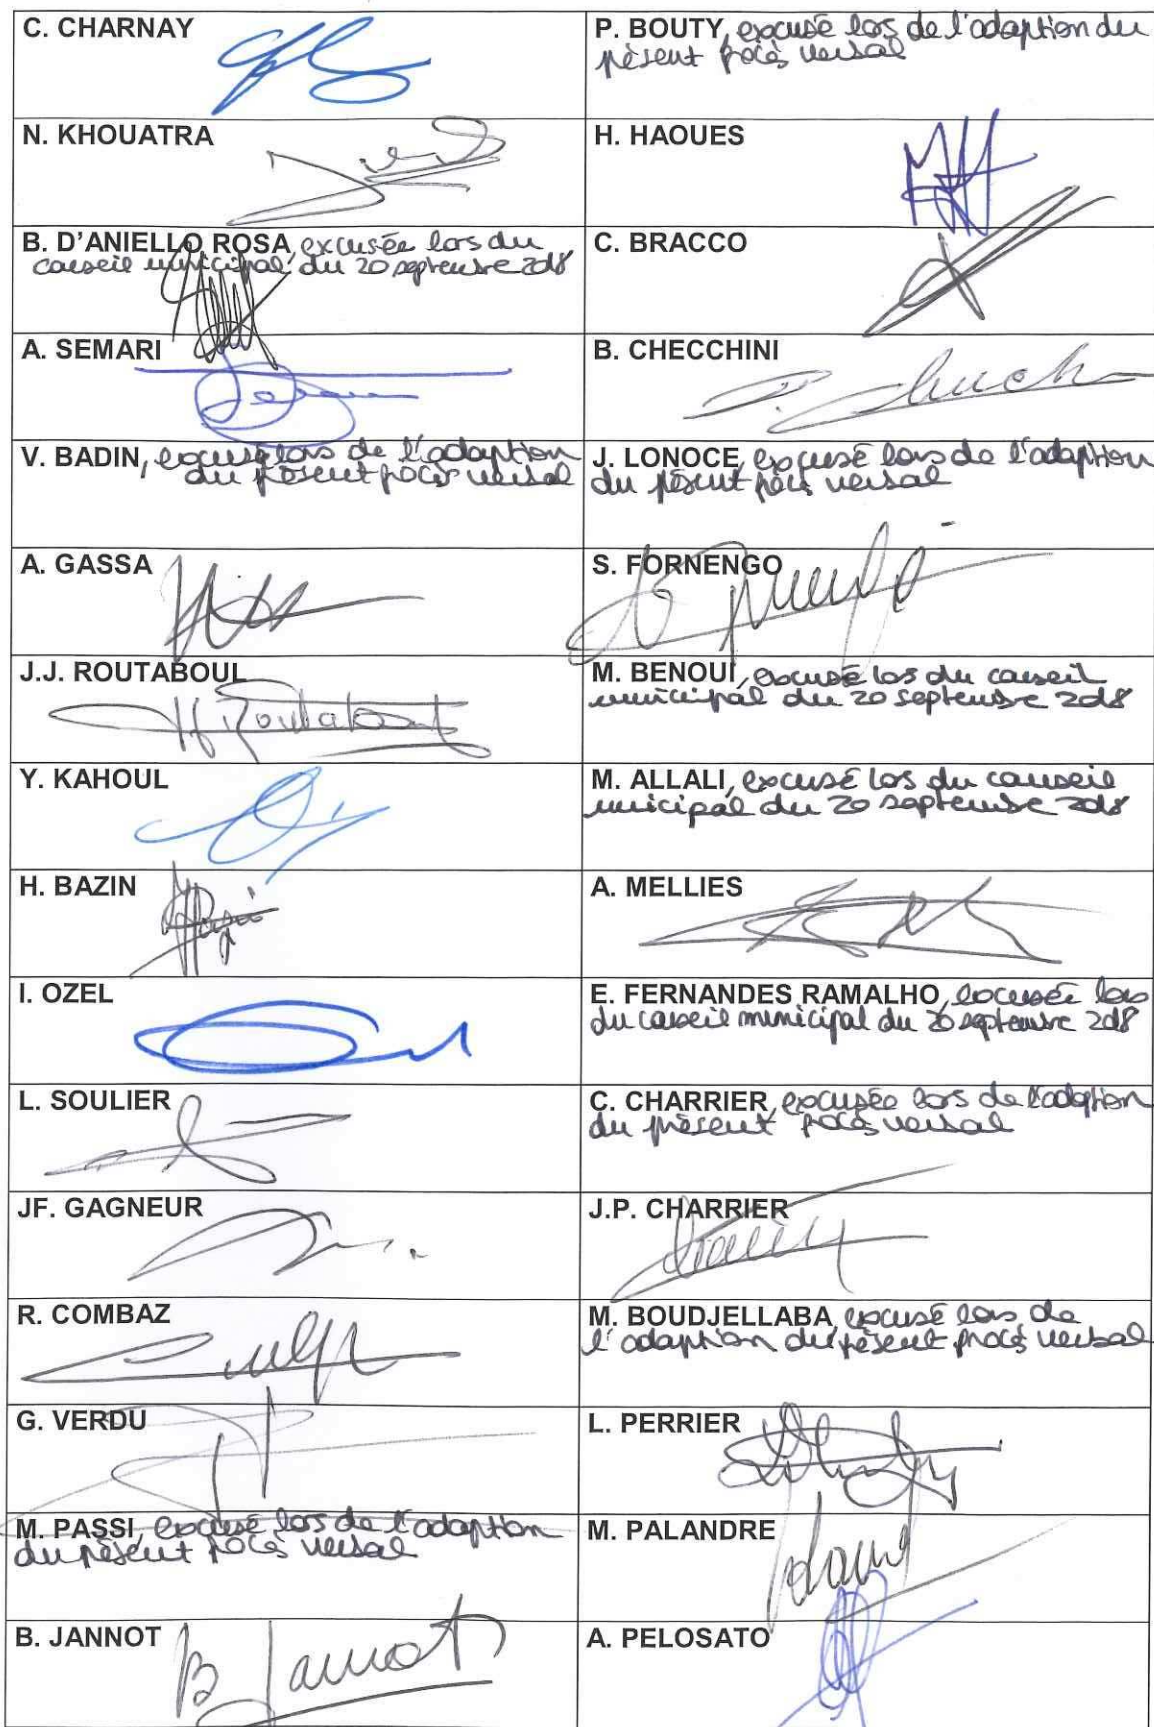 C. CHARNAY
P. BOUTY, excusé lors de l'adoption du
présent procès verbal
N. KHOUATRA
H. HAOUES
B. D'ANIELLO ROSA, excusée lors du
conseil municipal du 20 septembre 2018
C. BRACCO
A. SEMARI
B. CHECCHINI
V. BADIN, excusé lors de l'adoption
du présent procès verbal
J. LONOCE, excusé lors de l'adoption
du présent procès verbal
A. GASSA
S. FORNENGO
J.J. ROUTABOUL
M. BENOUI, excusé lors du conseil
municipal du 20 septembre 2018
Y. KAHOUL
M. ALLALI, excusé lors du conseil
municipal du 20 septembre 2018
H. BAZIN
A. MELLIES
I. OZEL
E. FERNANDES RAMALHO, excusée lors
du conseil municipal du 20 septembre 2018
L. SOULIER
C. CHARRIER, excusée lors de l'adoption
du présent procès verbal
JF. GAGNEUR
J.P. CHARRIER
R. COMBAZ
M. BOUDJELLABA, excusé lors de
l'adoption du présent procès verbal
G. VERDU
L. PERRIER
M. PASSI, excusé lors de l'adoption
du présent procès verbal
M. PALANDRE
B. JANNOT
B Jannot
A. PELOSATO